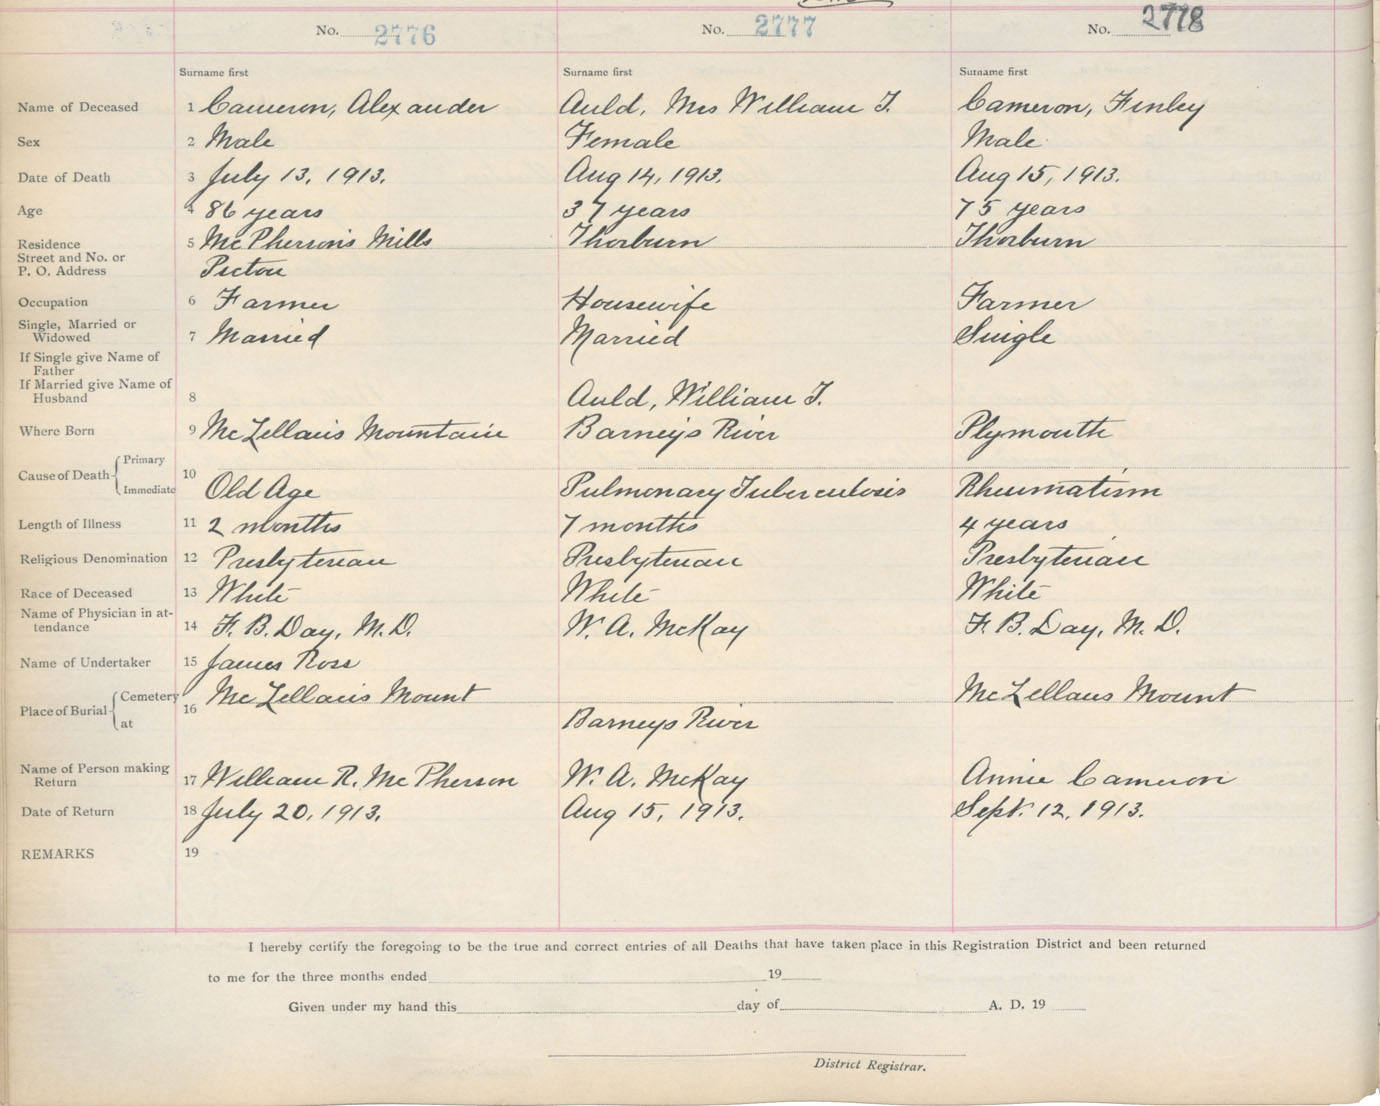 No. 2776 No. 2777 No. 2778
Surname first Surname first Surname first
Name of Deceased 1 Cameron, Alexander Auld, Mrs William J. Cameron, Finley
Sex 2 Male Female Male
Date of Death 3 July 13, 1913. Aug 14, 1913. Aug 15, 1913.
Age 4 86 years 37 years 75 years
Residence 5 McPherson's Mills Thorburn Thorburn
Street and No. or
P. O. Address Pictou
Occupation 6 Farmer Housewife Farmer
Single, Married or
Widowed 7 Married Married Single
If Single give Name of
Father
If Married give Name of
Husband 8 Auld, William J.
Where Born 9 McLellan's Mountain Barneys River Plymouth
Cause of Death Primary
Immediate 10 Old Age Pulmonary Tuberculosis Rheumatism
Length of Illness 11 2 months 7 months 4 years
Religious Denomination 12 Presbyterian Presbyterian Presbyterian
Race of Deceased 13 White White White
Name of Physician in at-
tendance 14 F. B. Day, M.D. W. A. McKay F. B. Day, M. D.
Name of Undertaker 15 James Ross
Place of Burial Cemetery McLellan's Mount McLellans Mount
at 16 Barneys River
Name of Person making
Return 17 William R. McPherson W. A. McKay Annie Cameron
Date of Return 18 July 20, 1913. Aug 15, 1913. Sept. 12, 1913.
REMARKS 19
I hereby certify the foregoing to be the true and correct entries of all Deaths that have taken place in this Registration District and been returned
to me for the three months ended 19
Given under my hand this day of A. D. 19
District Registrar.